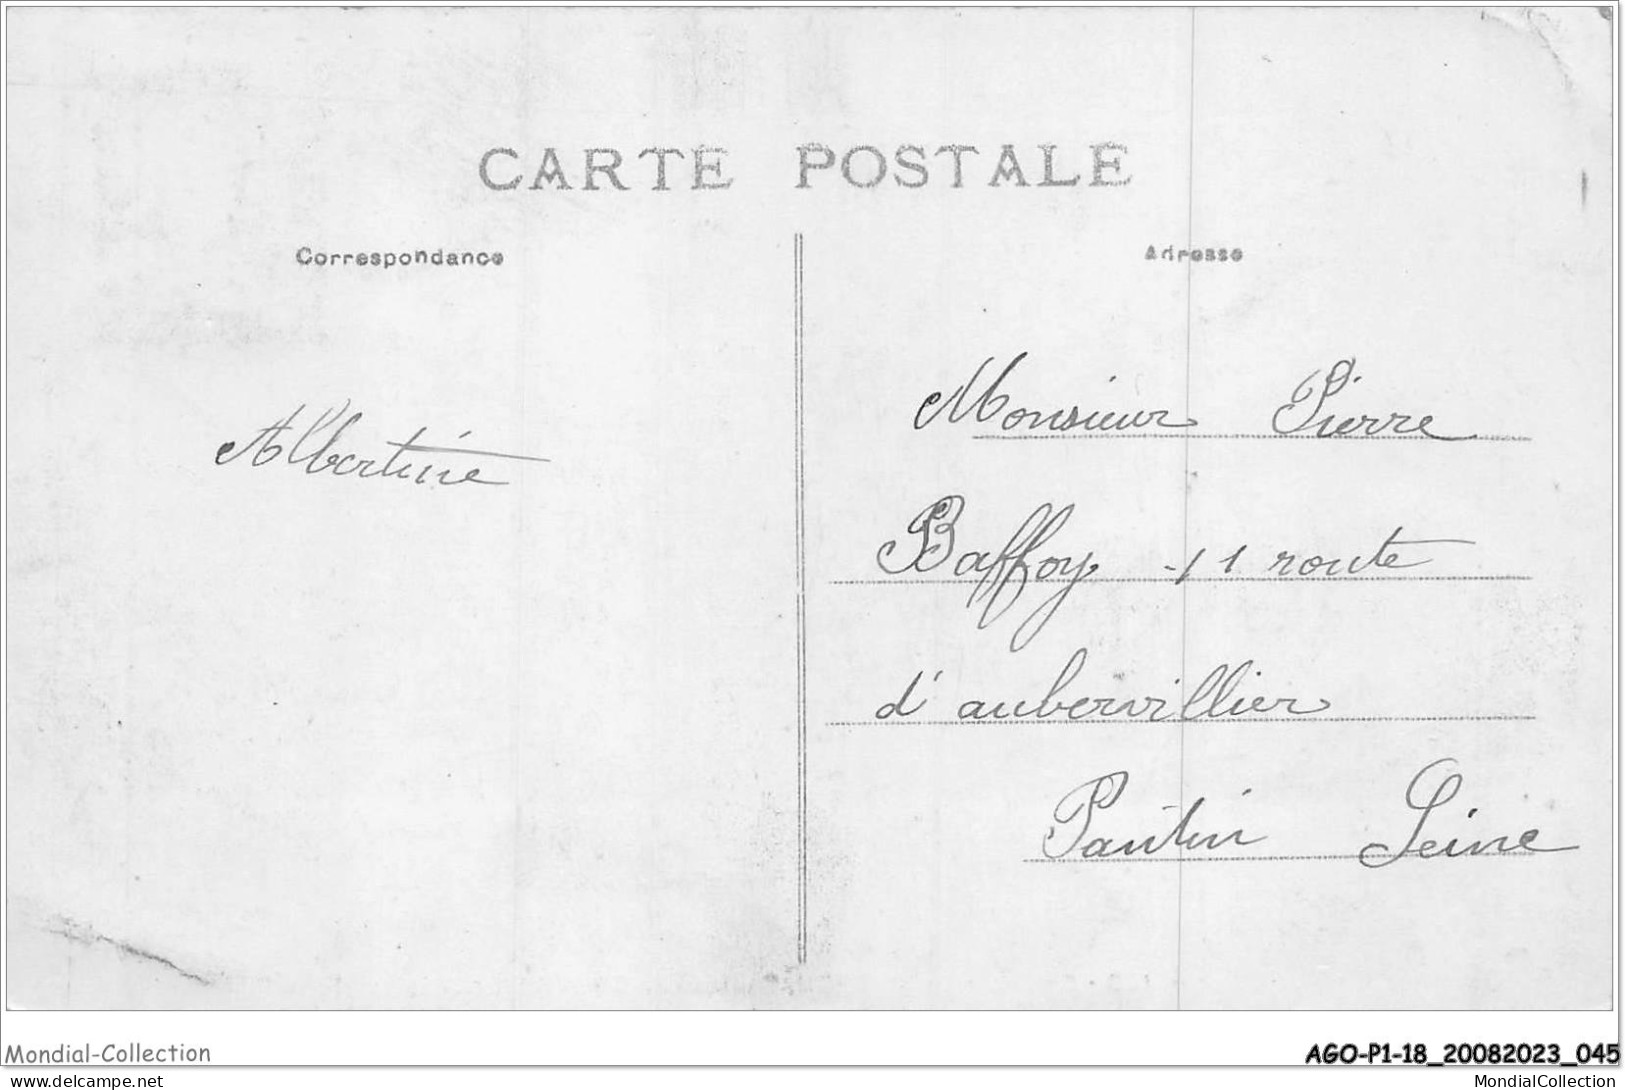 CARTE POSTALE
Correspondance
Adresse
Albertine
Monsieur Pierre
Baffoy 11 route
d'aubervillier
Pantin Seine
Mondial-Collection
AGO-P1-18_20082023_045
delcampe.net
MondialCollection